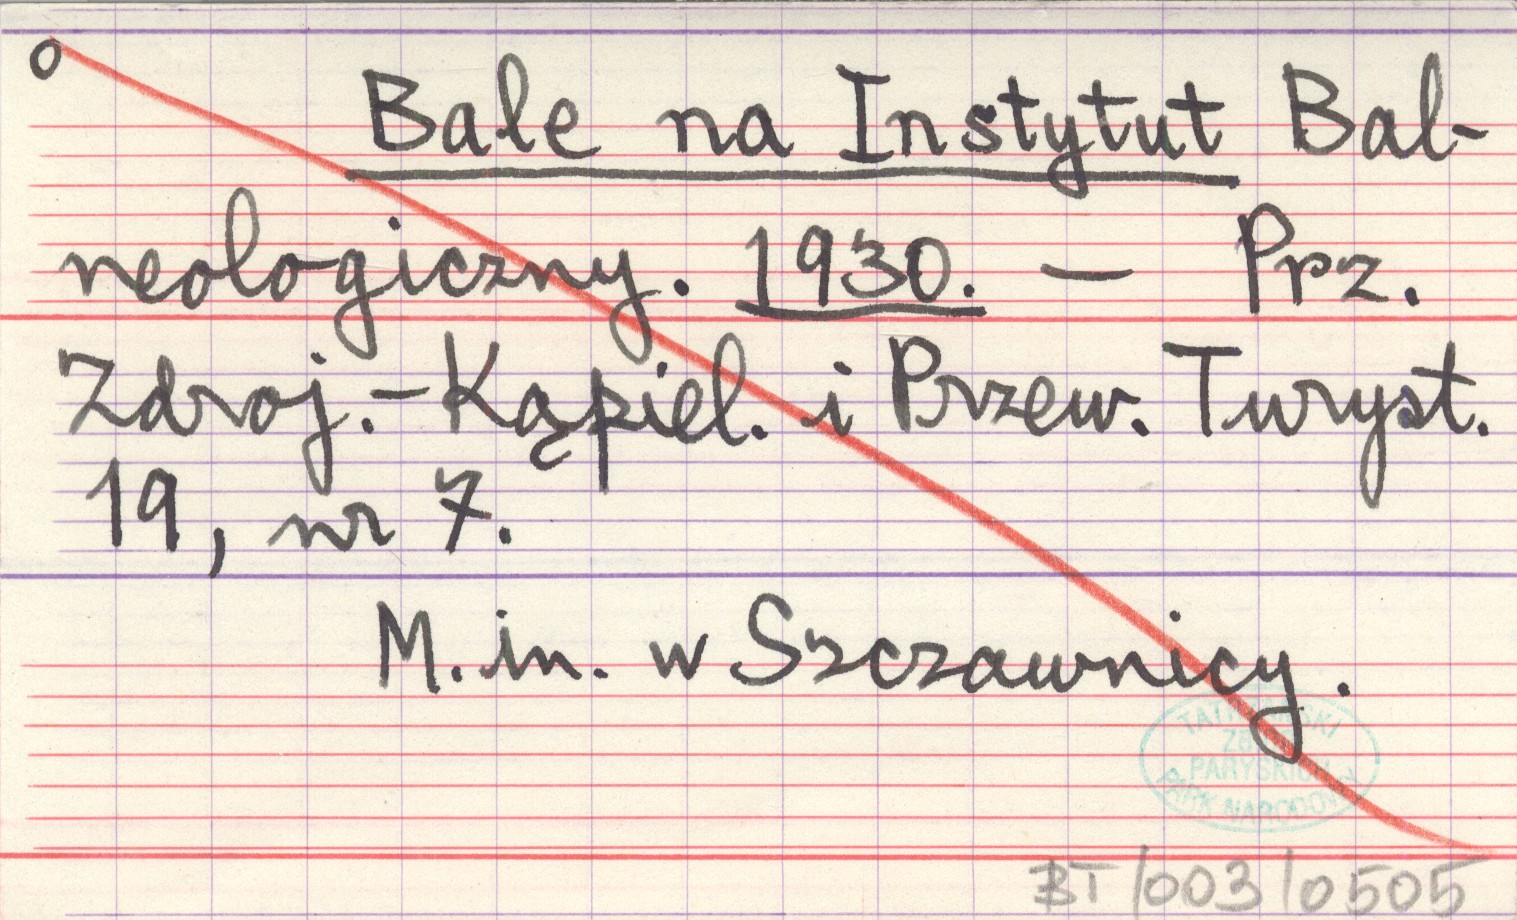 o
Bale na Instytut Bal-
neologiczny. 1930. — Prz.
Zdroj.-Kąpiel. i Przew. Turyst.
19, nr 7.
M. in. w Szczawnicy.
TATRZAŃSKI
ZB.
PARYSKICH
PARK NARODOWY
BT/003/0505